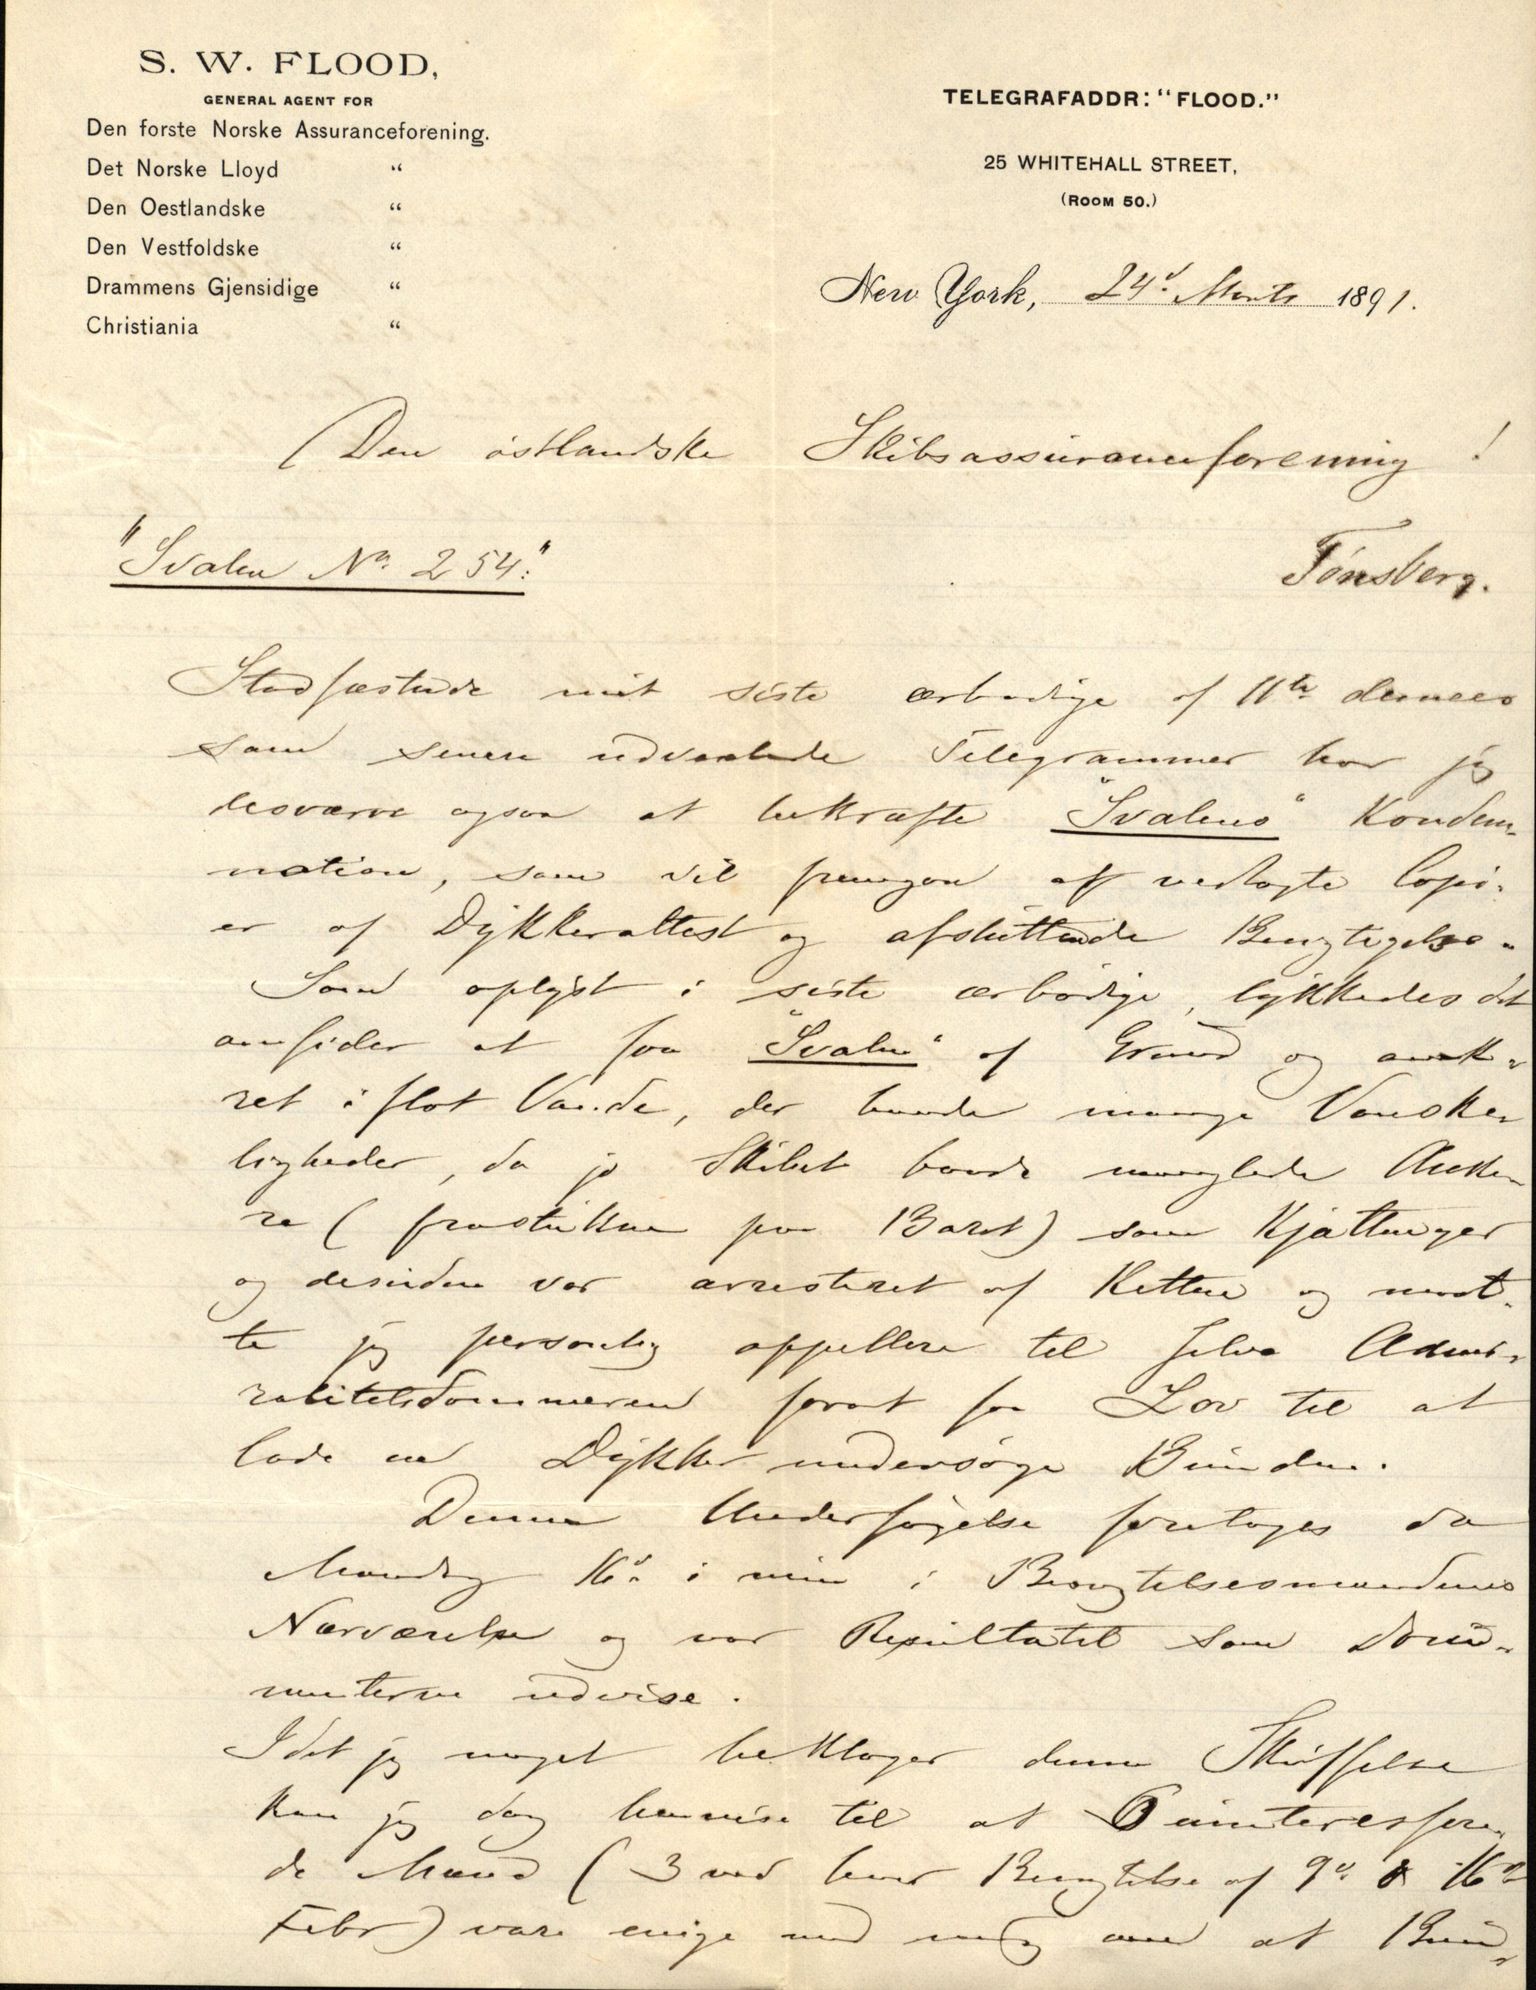 S. W. FLOOD,
GENERAL AGENT FOR
Den forste Norske Assuranceforening.
Det Norske Lloyd "
Den Oestlandske "
Den Vestfoldske "
Drammens Gjensidige "
Christiania "
TELEGRAFADDR: "FLOOD."
25 WHITEHALL STREET,
(ROOM 50.)
New York, 24d Marts 1891.
Den østlandske Skibsassuranceforening!
Tønsberg.
"Svalen No. 254."
Stadfæstende mit siste ærbødige af 11te dennes
som senere udvexlede Telegrammer har jeg
desværre ogsaa at bekræfte "Svalens" Kondem-
nation, som vil fremgaa af vedlagte Copi-
er af Dykkerattest og afsluttende Besigtigelse.
Som oplyst i siste ærbødige, lykkedes det
omsider at faa "Svalen" af Grund og ank-
ret i flot Vande, der havde mange Vanske-
ligheder, da jo Skibet baade manglede Ank-
re ( paa Baret) som Kjættinger
og desuden var arresteret af Retten og maat-
te jeg personlig appellere til selve Admi-
ralitetsdommeren forat faa Lov til at
lade en Dykker undersøge Bunden.
Denne Undersøgelse foretoges da
Mandag 16d i min i Besigtelsesmændenes
Nærværelse og var Resultatet som Doku-
menterne udvise.
Idet jeg meget beklager denne Skuffelse
kan jeg dog henvise til at 6 uinteressere-
de Mænd (3 ved hver Besigtelse af 9d & 16d
Febr) vare enige med mig om at Bun-